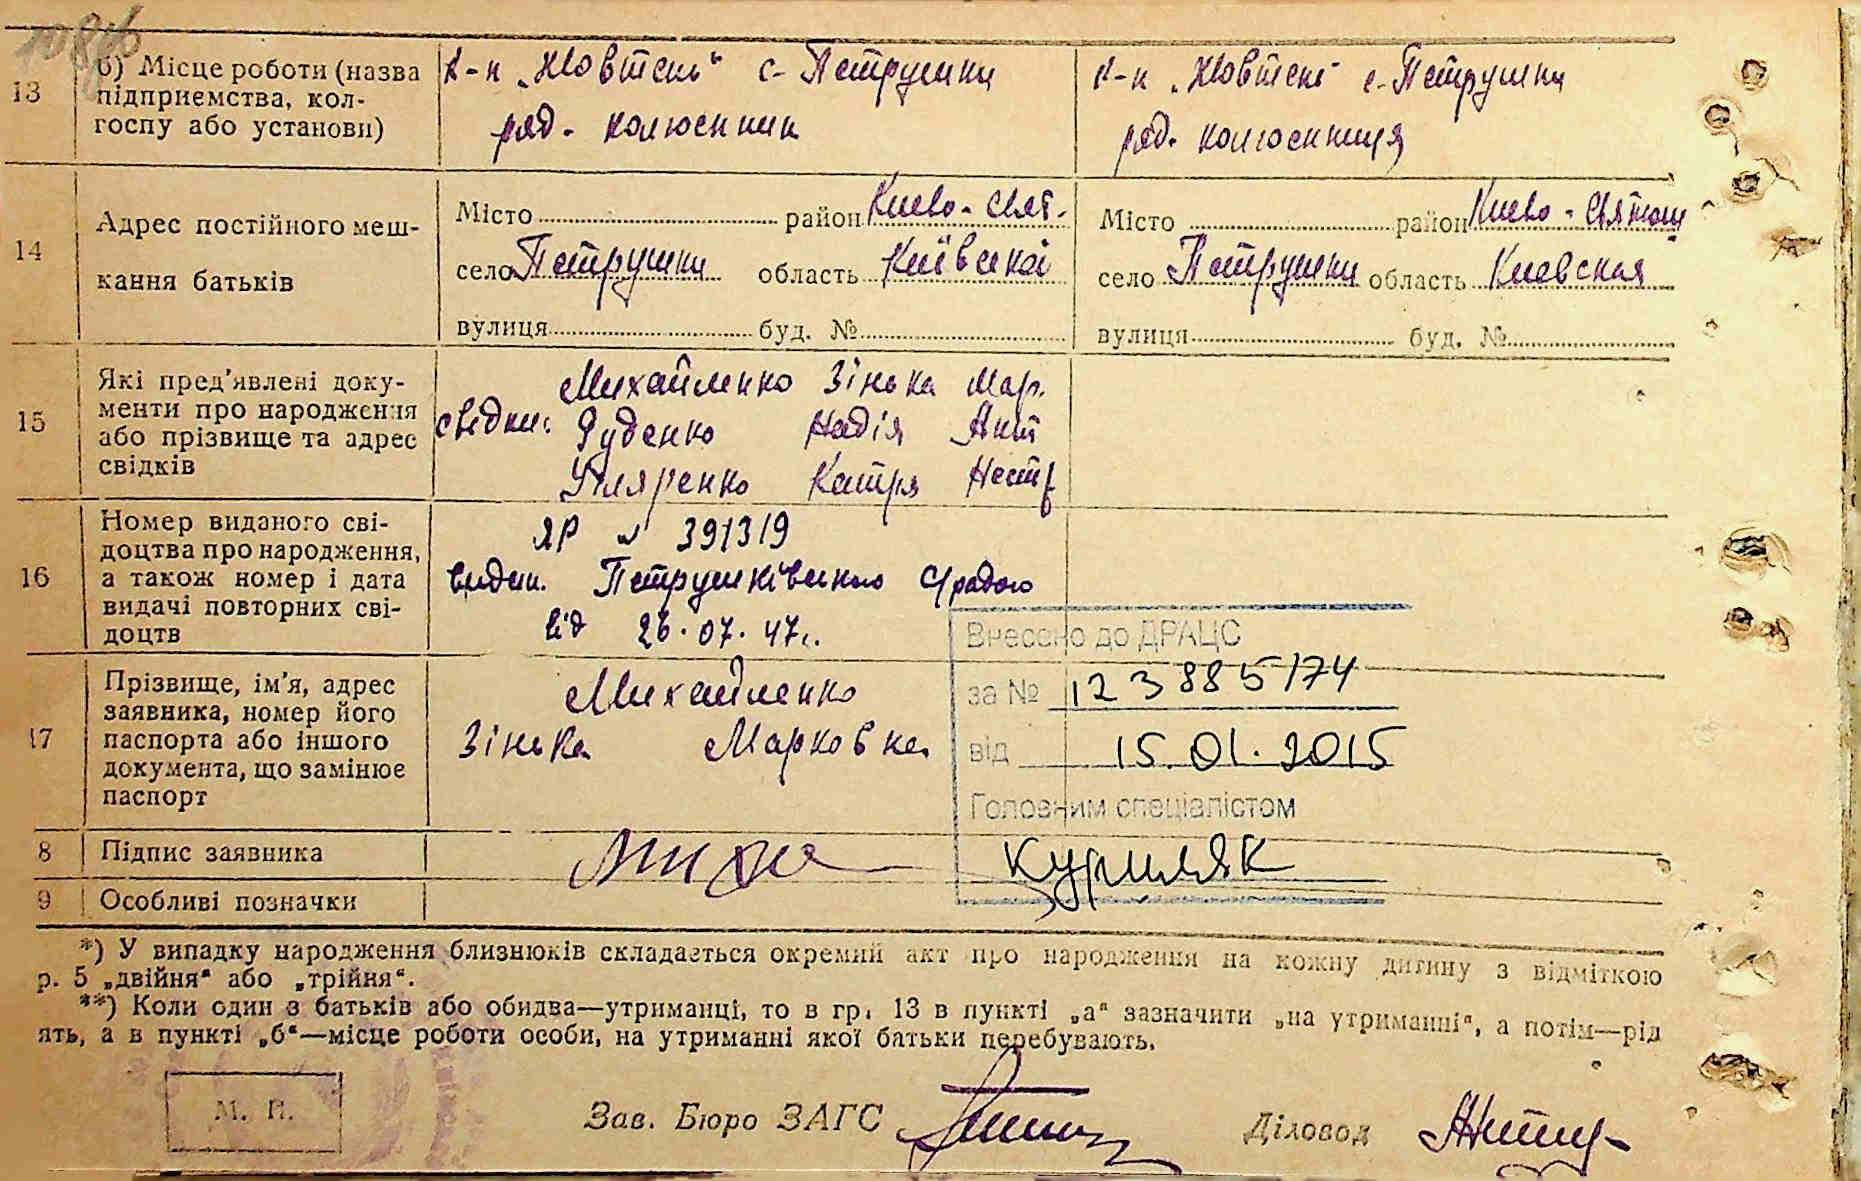 10816
13 б) Місце роботи (назва підприємства, колгоспу або установи)
к-п „Жовтень" с-Петрушки
ряд. колгоспник
к-п „Жовтень" с-Петрушки
ряд. колгоспниця
14 Адрес постійного меш-
кання батьків
Місто район Києво-Свят.
село Петрушки область Київської
вулиця буд. №
Місто район Киево-Святош
село Петрушки область Киевская
вулиця буд. №
15 Які пред'явлені доку-
менти про народження
або прізвище та адрес
свідків
Михайленко Зінька Мар.
свідки: Руденко Надія Ант
Катря Нест
16 Номер виданого сві-
доцтва про народження,
а також номер і дата
видачі повторних сві-
доцтв
ЯР № 391319
видан. Петрушківською с/радою
від 26.07.47.
Внесено до ДРАЦС
за № 123885174
від 15.01.2015
Головним спеціалістом
Куриляк
17 Прізвище, ім'я, адрес
заявника, номер його
паспорта або іншого
документа, що замінює
паспорт
Михайленко
Зінька Марковна
8 Підпис заявника
Миха
9 Особливі позначки
*) У випадку народження близнюків складається окремий акт про народження на кожну дитину з відміткою
р. 5 „двійня“ або „трійня“.
**) Коли один з батьків або обидва—утриманці, то в гр. 13 в пункті „а“ зазначити „на утриманні“, а потім—рід
ять, а в пункті „б“—місце роботи особи, на утриманні якої батьки перебувають.
М. П.
Зав. Бюро ЗАГС
Діловод